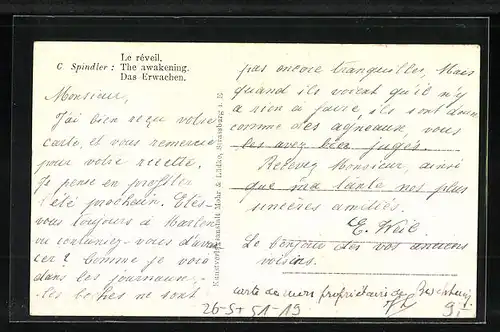 Le réveil.
C. Spindler : The awakening.
Das Erwachen.
Monsieur,
J'ai bien reçu votre
carte, et vous remercie
pour votre recette.
Je pense en profiter
l'été prochain. Etes-
vous toujours à
ou continuez-vous
cer ? Comme je vois
dans les journaux,
les boches ne sont
Kunstverlagsanstalt Mohr & Lüdke, Strassburg i. E
pas encore tranquilles, Mais
quand ils voient qu'il n'y
a rien à faire ils sont doux
comme des agneaux, vous
les avez bien jugés.
Recevez Monsieur, ainsi
que ma tante nos plus
sincères amitiés.
E. Weil
Le bonjour des vos anciens
voisins.
carte de mers propriétaire de
26-5+ 51-19